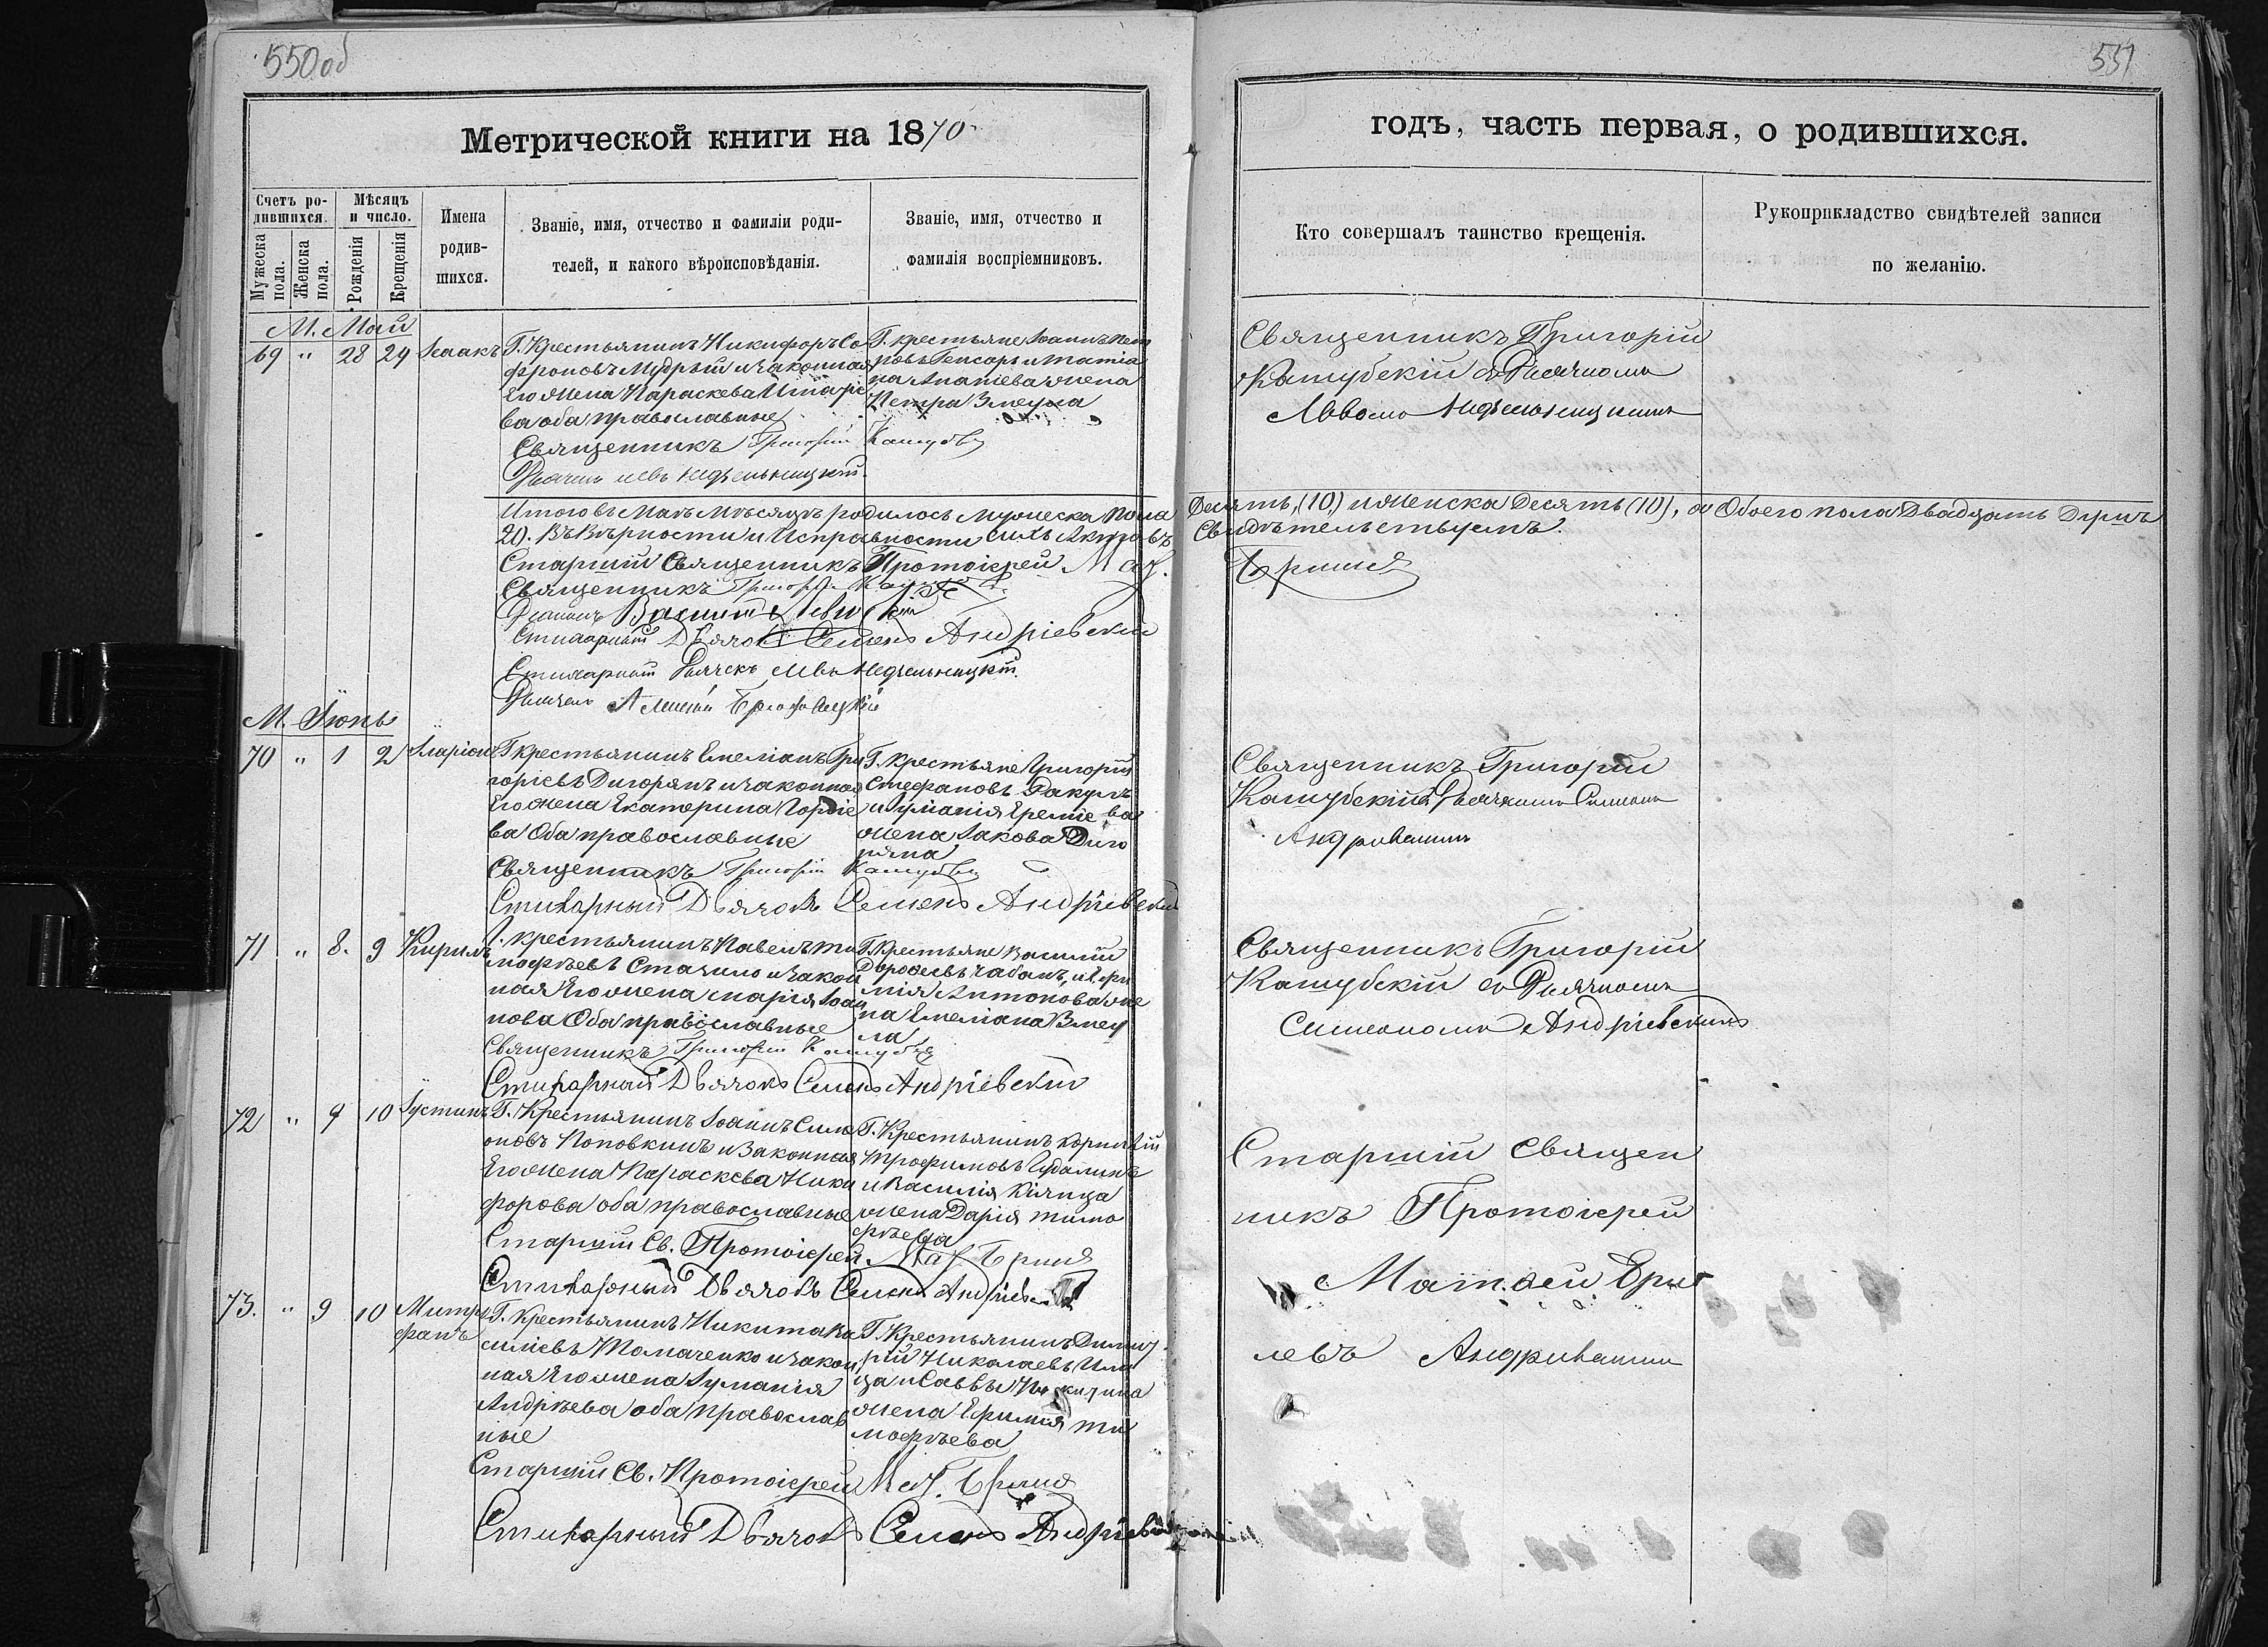 550об
551
Метрической книги на 1870
годъ, часть первая, о родившихся.
Счетъ родившихся.
Мужеска пола.
Женска пола.
Мѣсяцъ и число.
Рожденія
Крещенія
Имена
родив-
шихся.
Званіе, имя, отчество и фамиліи роди-
телей, и какого вѣроисповѣданія.
Званіе, имя, отчество и
фамилія воспріемниковъ.
Кто совершалъ таинство крещенія.
Рукоприкладство свидѣтелей записи
по желанію.
М. Май
69 " 28 29 Исаакъ
Г. Крестьянинъ Никифоръ Со
фроновъ Мудрый и законная
Его жена Параскева
ва оба православные
Священникъ Григорій Кашубскій
Дьячекъ Левъ Недзельницкій.
Г. крестьяне Іоаннъ Пет
ровъ и Татіа
на Анатіева жена
Петра Змеула
Священникъ Григорій
Кашубскій съ Дьячкомъ
Львомъ Недзельницкимъ
Итого въ Маѣ Мѣсяцѣ родилось Мужеска Пола
Десять, (10,) и Женска Десять (10), а Обоего пола Двадцать Душъ
20. Въ Вѣрности и Исправности сихъ Актовъ
Свидѣтельствуемъ.
Старшій Священникъ Протоіерей Маѳ.
Священникъ Григорій
Стихарный Дьячокъ Семенъ Андріевскій
Стихарный Дьячекъ Левъ Недзельницкій.
Дьячекъ
М. Іюнь
70 " 1 2 Иларіонъ
Г крестьянинъ Емеліанъ Гри
горіевъ Дигорянъ и законная
Его жена Екатерина Гордіе
ва Оба православные
Священникъ Григорій Кашубскій
Стихарный Дьячокъ Семенъ Андріевскій
Г. Крестьяне Григорій
Стефановъ
и Іуліанія Еремѣева
жена Іакова Диго
ряна
Священникъ Григорій
Кашубскій съ Дьячкомъ Симеономъ
Андріевскимъ
71 " 8. 9 Кирилъ
Г. крестьянинъ Павелъ Ти
мофѣевъ Стачило и закон
ная Его жена Марія Іоан
нова Оба православные
Священникъ Григорій Кашубскій
Стихарный Дьячокъ Семенъ Андріевскій
Г. Крестьяне Василій
Дорофеевъ Чабанъ, и Ефи
мія Антонова же
на Емеліана Змеу
ла
Священникъ Григорій
Кашубскій съ Дьячкомъ
Симеономъ Андріевскимъ
72 " 9 10 Іустинъ
Г. Крестьянинъ Іоаннъ Сим
оновъ Поповкинъ и Законная
Его жена Параскева Ники
форова оба православные
Старшій Св. Протоіерей Маѳ.
Стихарный Дьячокъ Семенъ
Г. Крестьянинъ Корнилій
Трофимовъ
и Василія
жена Дарія Тимо
фѣева
Старшій Священ
никъ Протоіерей
Матѳей
73. " 9 10 Митро
фанъ
Г. Крестьянинъ Никита Ва
силіевъ Томаченко и закон
ная Его жена Іуліанія
Андрѣева оба православ
ные
Старшій Св. Протоіерей Маѳ.
Стихарный Дьячокъ Семенъ
Г. Крестьянинъ Димит
рій Николаевъ
ца и Саввы
жена Ефимія Ти
мофѣева